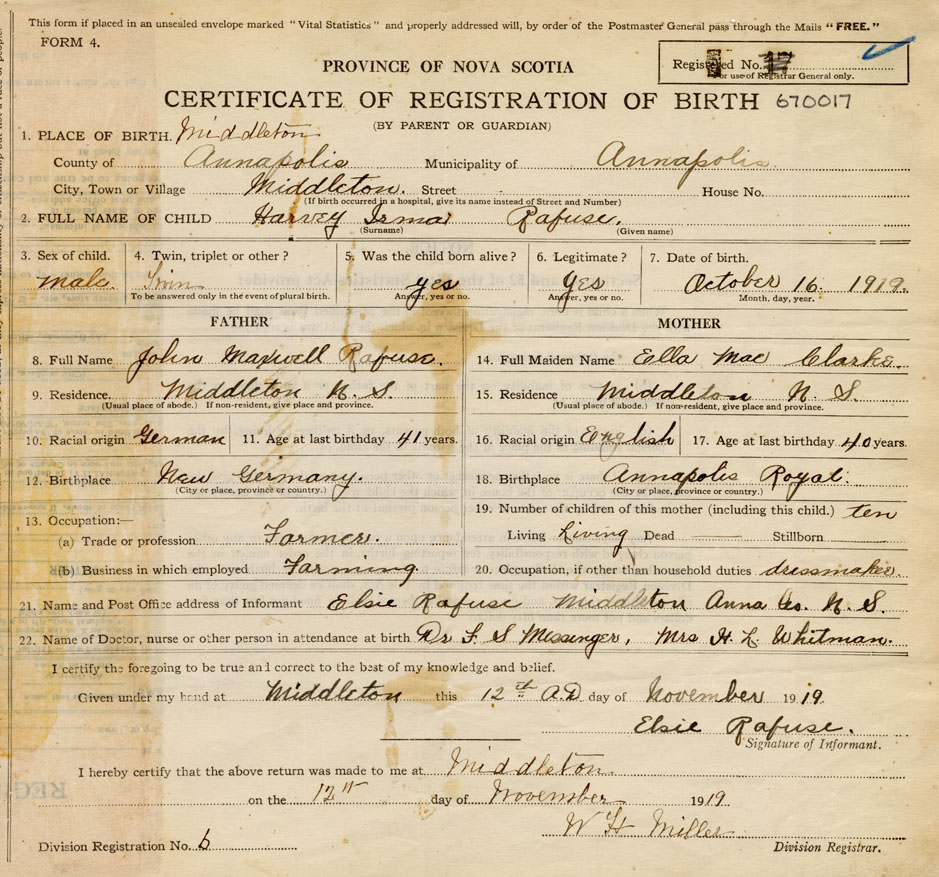 This form if placed in an unsealed envelope marked "Vital Statistics" and properly addressed will, by order of the Postmaster General pass through the Mails "FREE."
FORM 4.
Registered No. 17
For use of Registrar General only.
PROVINCE OF NOVA SCOTIA
CERTIFICATE OF REGISTRATION OF BIRTH 670017
(BY PARENT OR GUARDIAN)
1. PLACE OF BIRTH. Middleton
County of Annapolis Municipality of Annapolis
City, Town or Village Middleton. Street House No.
(If birth occurred in a hospital, give its name instead of Street and Number)
2. FULL NAME OF CHILD Harvey Irma Rafuse.
(Surname) (Given name)
3. Sex of child. 4. Twin, triplet or other? 5. Was the child born alive? 6. Legitimate? 7. Date of birth.
Male. Twin yes yes October 16. 1919.
To be answered only in the event of plural birth. Answer, yes or no. Answer, yes or no. Month, day, year.
FATHER MOTHER
8. Full Name John Maxwell Rafuse. 14. Full Maiden Name Ella Mae Clarke.
9. Residence. Middleton N. S. 15. Residence Middleton N. S.
(Usual place of abode.) If non-resident, give place and province. (Usual place of abode.) If non-resident, give place and province.
10. Racial origin German 11. Age at last birthday 41 years. 16. Racial origin English 17. Age at last birthday 40 years.
12. Birthplace New Germany. 18. Birthplace Annapolis Royal.
(City or place, province or country.) (City or place, province or country.)
13. Occupation:— 19. Number of children of this mother (including this child.) ten
(a) Trade or profession Farmer. Living Living Dead — Stillborn
(b) Business in which employed Farming 20. Occupation, if other than household duties dressmaker.
21. Name and Post Office address of Informant Elsie Rafuse Middleton Anna Co. N. S.
22. Name of Doctor, nurse or other person in attendance at birth Dr F. S Messenger, Mrs H. L. Whitman.
I certify the foregoing to be true and correct to the best of my knowledge and belief.
Given under my hand at Middleton this 12th A.D. day of November 1919.
Elsie Rafuse.
Signature of Informant.
I hereby certify that the above return was made to me at Middleton
on the 12th day of November 1919
W H Miller
Division Registration No. 6 Division Registrar.